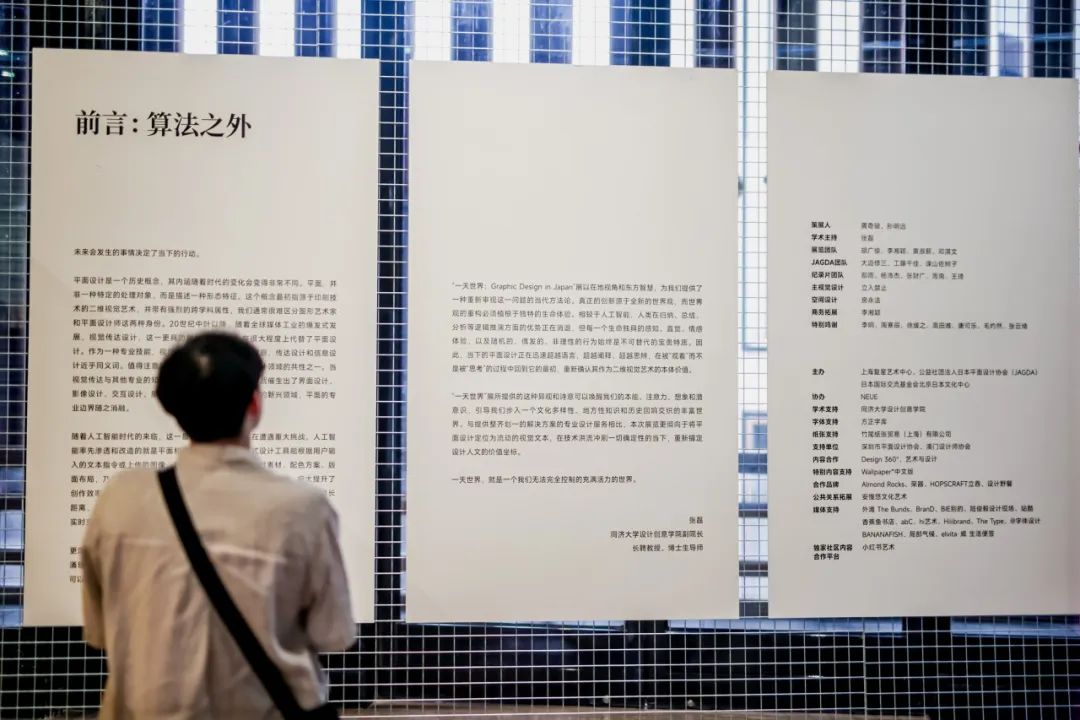 前言：算法之外
未来会发生的事情决定了当下的行动。
平面设计是一个历史概念，其内涵随着时代的变化会变得非常不同。平面，并
非一种特定的处理对象，而是描述一种形态特征。这个概念最初指源于印刷技
术的二维视觉艺术，并带有强烈的跨学科属性，我们通常很难区分图形艺术家
和平面设计师这两种身份。20世纪中叶以降，随着全球媒体工业的爆发式发
展，视觉传达设计，这一更具的 在很大程度上代替了平面设
计。作为一种专业技能，视 传达设计和信息设
计近乎同义词。值得注意 领域的共性之一。当
视觉传达与其他专业的知 催生出了界面设计、
影像设计、交互设计、 的新兴领域，平面的专
业边界随之消融。
随着人工智能时代的来临，这一 在遭遇重大挑战。人工智
能率先渗透和改造的就是平面 设计工具能根据用户输
入的文本指令或上传的图像 素材、配色方案、版
面布局，乃 大提升了
创作效率
距离，
实时
更
可以
“一天世界：Graphic Design in Japan”展以在地视角和东方智慧，为我们提供了
一种重新审视这一问题的当代方法论。真正的创新源于全新的世界观，而世界
观的重构必须植根于独特的生命体验。相较于人工智能，人类在归纳、总结、
分析等逻辑推演方面的优势正在消退，但每一个生命独具的感知、直觉、情感
体验，以及随机的、偶发的、非理性的行为始终是不可替代的宝贵特质。因
此，当下的平面设计正在迅速超越语言、超越阐释、超越思辨，在被“观看”而不
是被“思考”的过程中回到它的最初，重新确认其作为二维视觉艺术的本体价值。
“一天世界”展所提供的这种异观和诗意可以唤醒我们的本能、注意力、想象和潜
意识，引导我们步入一个文化多样性、地方性知识和历史回响交织的丰富世
界。与提供整齐划一的解决方案的专业设计服务相比，本次展览更倾向于将平
面设计定位为流动的视觉文本，在技术洪流冲刷一切确定性的当下，重新锚定
设计人文的价值坐标。
一天世界，就是一个我们无法完全控制的充满活力的世界。
张磊
同济大学设计创意学院副院长
长聘教授，博士生导师
策展人 龚奇骏、孙明远
学术主持 张磊
展览团队 胡广俊、李湘颖、黄叔薪、邓淇文
JAGDA团队 大迫修三、工藤千佳、津山佐映子
纪录片团队 郄雨、杨沛杰、张财广、周南、王琦
主视觉设计 立入禁止
空间设计 房永法
商务拓展 李湘颖
特别鸣谢 李响、周寒薇、徐媛之、高田唯、唐可乐、毛灼然、张云锋
主办 上海复星艺术中心、公益社团法人日本平面设计协会（JAGDA）
日本国际交流基金会北京日本文化中心
协办 NEUE
学术支持 同济大学设计创意学院
字体支持 方正字库
纸张支持 竹尾纸张贸易（上海）有限公司
支持单位 深圳市平面设计协会、澳门设计师协会
内容合作 Design 360°、艺术与设计
特别内容支持 Wallpaper*中文版
合作品牌 Almond Rocks、荣器、HOPSCRAFT立香、设计野餐
公共关系拓展 安慢悠文化艺术
媒体支持 外滩 The Bunds、BranD、BIE别的、陆俊毅设计现场、站酷
香蕉鱼书店、abC、hi艺术、Hiiibrand、The Type、@字体设计
BANANAFISH、局部气候、elvita 威 生活便签
独家社区内容 小红书艺术
合作平台